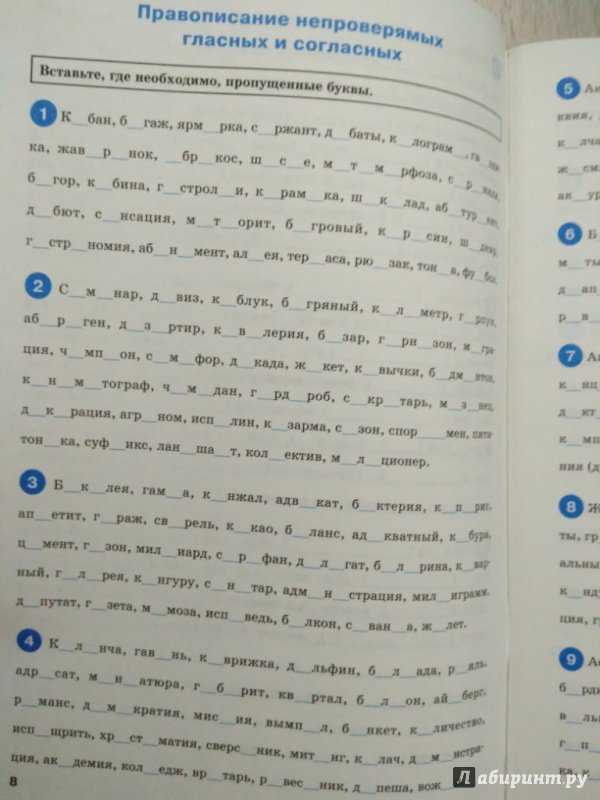 Правописание непроверямых
гласных и согласных
Вставьте, где необходимо, пропущенные буквы.
1 К__бан, б__гаж, ярм__рка, с__ржант, д__баты, к__лограм__,
ка, жав__р__нок, __бр__кос, ш__с__е, м__т__м__рфоза,
б__гор, к__бина, г__строл__и, к__рам__ка, ш__к__лад,
д__бют, с__нсация, м__т__орит, б__гровый, к__р__син,
г__стр__номия, аб__н__мент, ал__ея, тер__аса, рю__зак, тон__а,
2 С__м__нар, д__виз, к__блук, б__гряный, к__л__метр,
аб__р__ген, д__з__ртир, к__в__лерия, б__зар, г__рн__зон, м__гра-
ция, ч__мп__он, с__м__фор, д__када, ж__кет, к__вычки, б__дм__нтон,
к__н__м__тограф, ч__м__дан, г__рд__роб, с__кр__тарь, м__з__нец,
д__к__рация, агр__ном, исп__лин, к__зарма, с__зон, спор____мен, пяти-
тон__ка, суф__икс, лан__ша__т, кол__ектив, м__л__ционер.
3 Б__к__лея, гам__а, к__нжал, адв__кат, б__ктерия, к__п__риз,
ап__етит, г__раж, св__рель, к__као, б__ланс, ад__кватный, к__бура,
ц__мент, г__зон, мил__иард, с__р__фан, д__л__гат, б__л__рина, к__вар-
ный, г__л__рея, к__нгуру, с__н__тар, адм__н__страция, мил__играмм,
д__путат, г__зета, м__моза, исп__ведь, б__лкон, с__ван__а, ж__лет.
4 К__л__нча, гав__нь, к__врижка, д__льфин, б__л__ада, р__яль,
адр__сат, м__н__атюра, г__б__рит, кв__ртал, б__л__он, ай__берг,
р__манс, д__м__кратия, мис__ия, вымп__л, б__нкет, к__личество,
исп__щрить, хр__ст__матия, сверс__ник, мит__нг, к__лач, д__м__нстра-
ция, ак__демия, кол__едж, вр__тарь, р__вес__ник, д__пеша, вож__
8
5
6
7
8
9
Лабиринт.ру